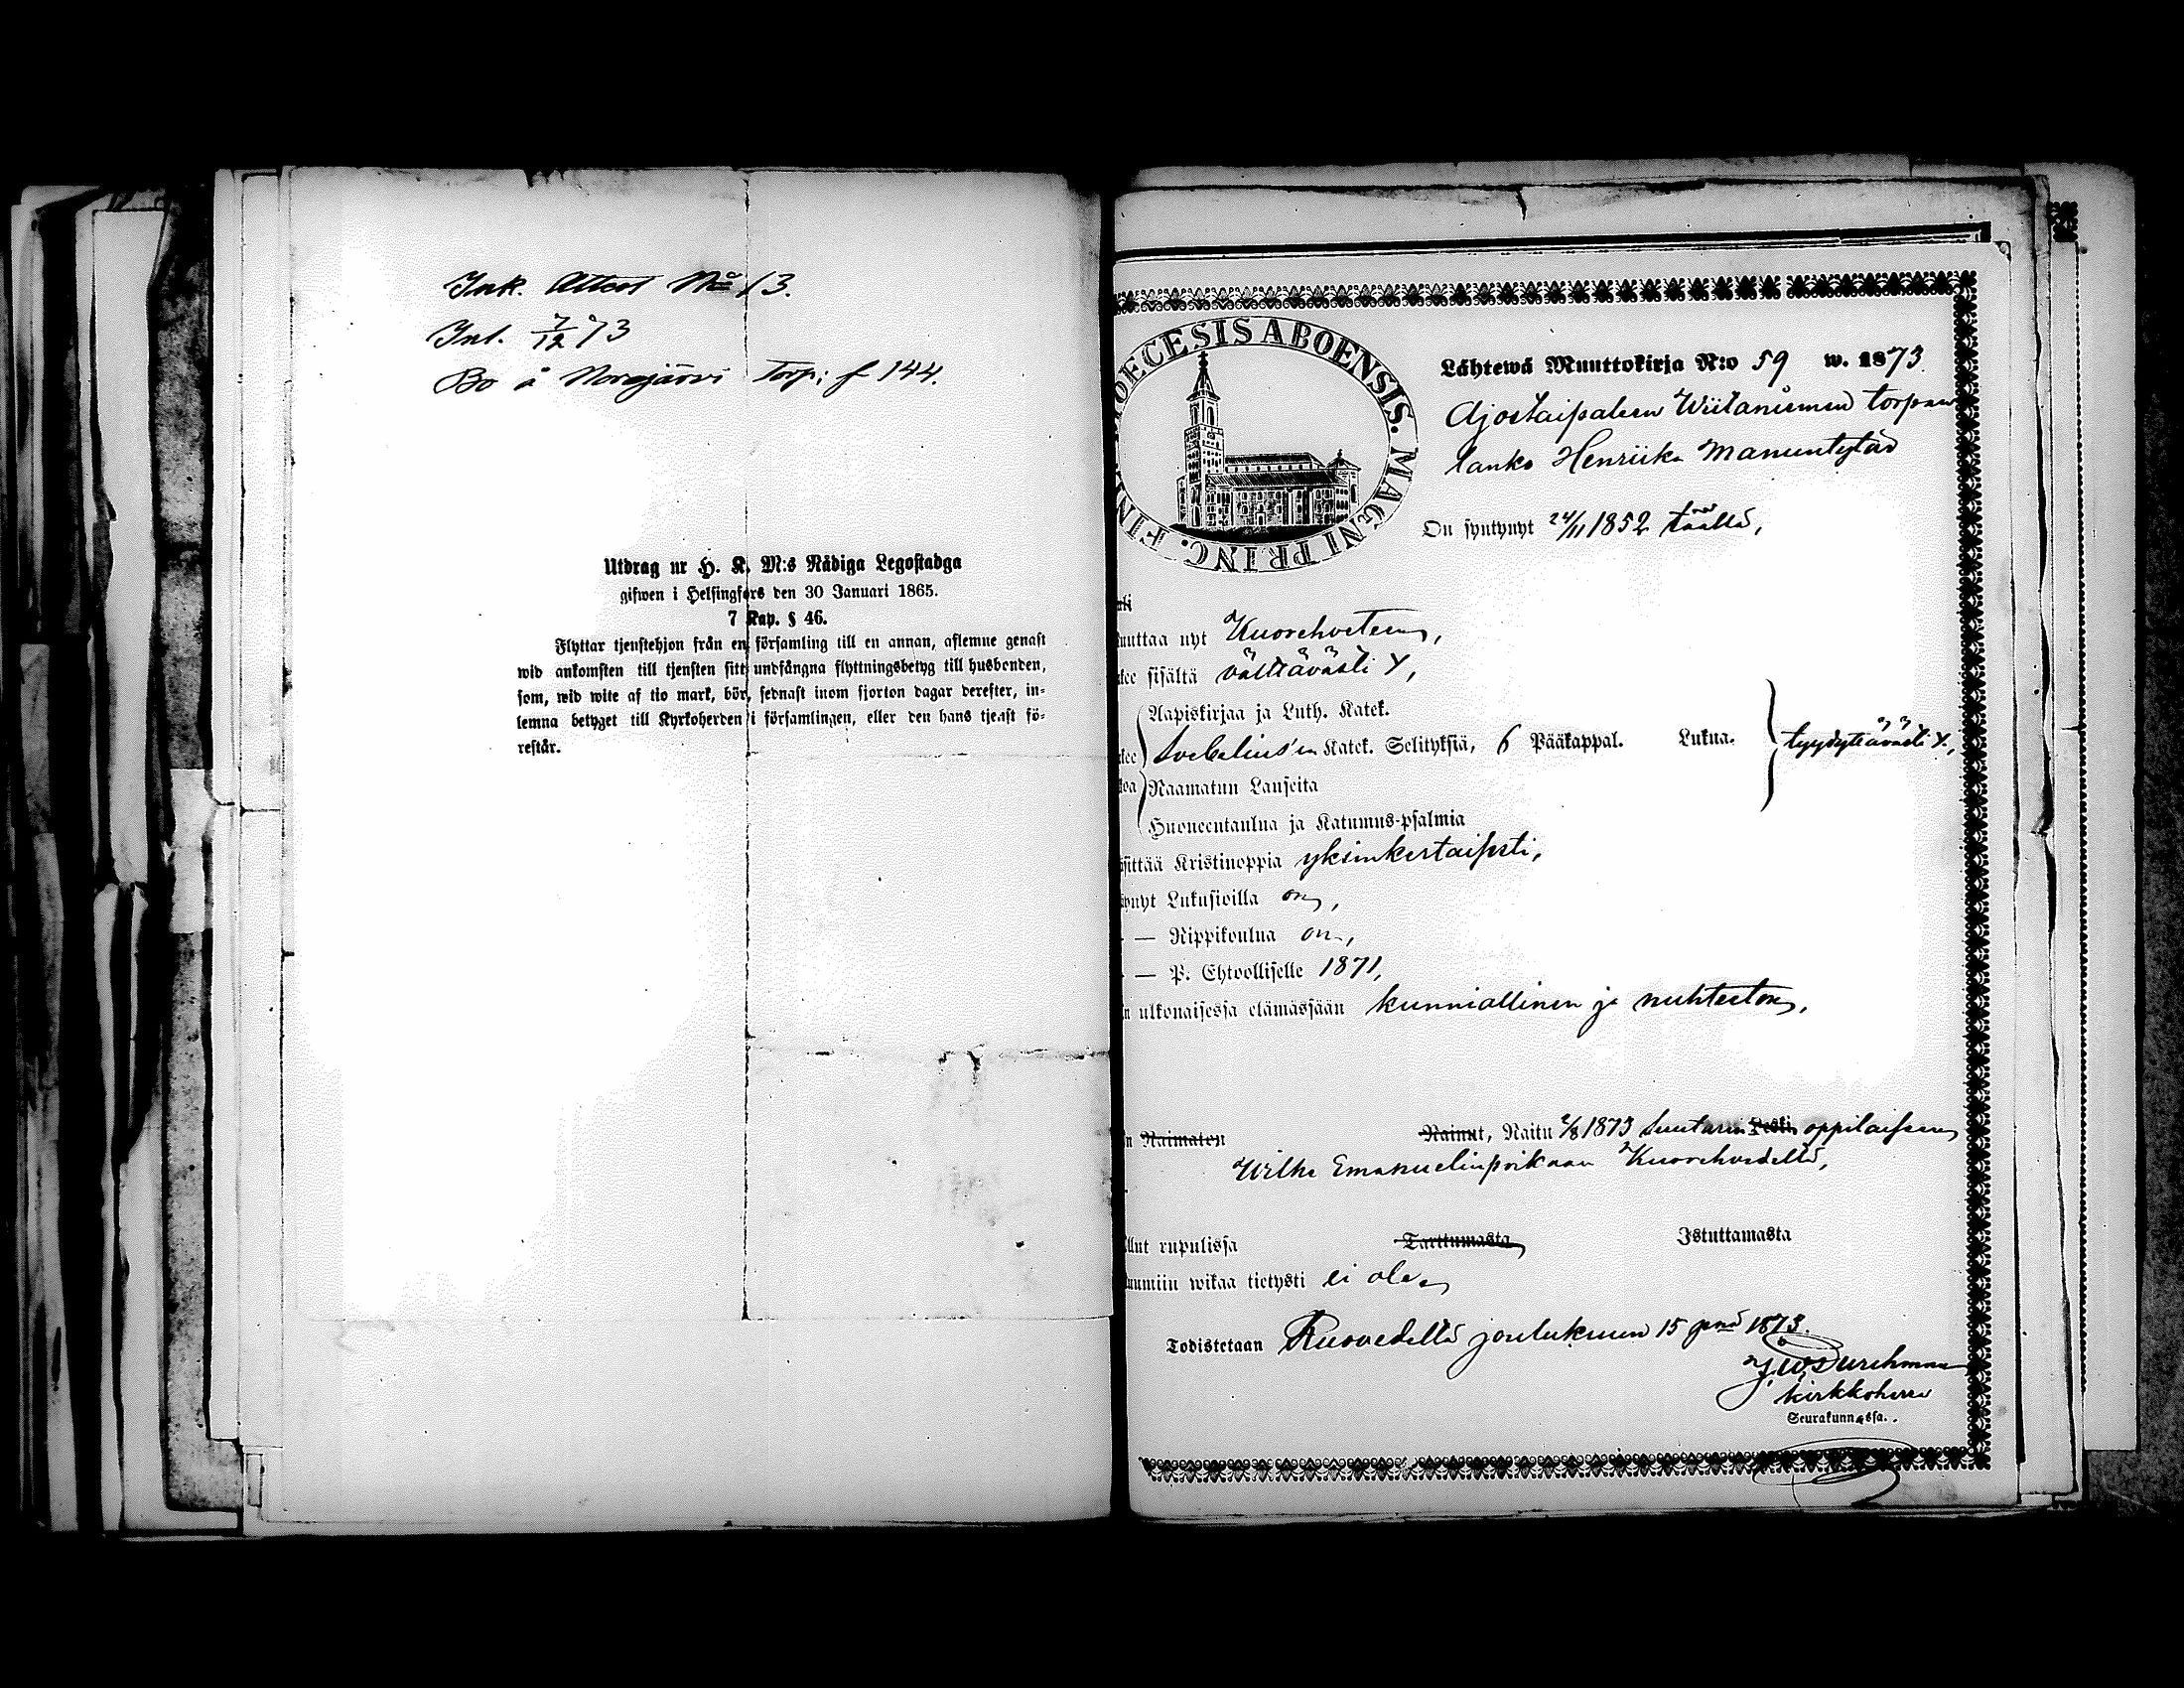 Ink. Attest No 13.
Inl. 7/12 73
Bo å Norajärvi Torp; f 144.
Utdrag ur H. K. M:s Nådiga Legostadga
gifwen i Helsingfors den 30 Januari 1865.
7 Kap. § 46.
Flyttar tjenstehjon från en församling till en annan, aflemne genast
wid ankomsten till tjensten sitt undfångna flyttningsbetyg till husbonden,
som, wid wite af tio mark, bör, sednast inom fjorton dagar derefter, in-
lemna betyget till Kyrkoherden i församlingen, eller den hans tjenst fö-
restår.
DIOECESIS ABOENSIS. MAGNI PRINC. FINL
Lähtewä Muuttokirja N:o 59 w. 1873.
Ajostaipaleen Wiitaniemen torpan
Henriika Manuntytär
On syntynyt 24/11 1852 täällä,
uuttaa nyt Kuorehveteen,
kee sisältä välttävästi Y,
Aapiskirjaa ja Luth. Katek.
kee Svebelius'en Katek. Selityksiä, 6 Pääkappal. Lukua. tyydyttävästi Y.,
koa Raamatun Lauseita
Huoneentaulua ja Katumus-psalmia
sittää Kristinoppia yksinkertaisesti,
ynyt Lukusioilla on,
— Rippikoulua on,
— P. Ehtoolliselle 1871,
n ulkonaisessa elämässään kunniallinen ja nuhteeton,
n Naimaton Nainut, Naitu 2/8 1873 Suutarin oppilaisen
Wilho Emanuelinpoikaan Kuorehvedellä,
llut rupulissa Tarttumasta Istuttamasta
uumiin wikaa tietysti ei ole,
Todistetaan Ruovedellä joulukuun 15 pnä 1873.
J. W. Durchman
kirkkoherra
Seurakunnassa.